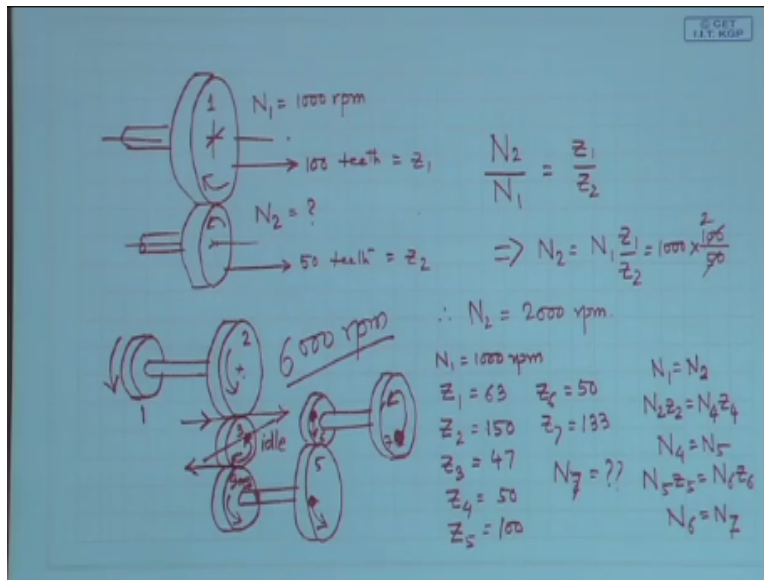 © CET
I.I.T. KGP
1
N₁ = 1000 rpm
100 teeth = Z₁
N₂ = ?
50 teeth = Z₂
N₂/N₁ = Z₁/Z₂
⇒ N₂ = N₁ Z₁/Z₂ = 1000 × 100/50 2
∴ N₂ = 2000 rpm
6000 rpm
1
2
3
idle
5
7
N₁ = 1000 rpm
Z₁ = 63
Z₂ = 150
Z₃ = 47
Z₄ = 50
Z₅ = 100
Z₆ = 50
Z₇ = 133
N₇ = ??
N₁ = N₂
N₂Z₂ = N₄Z₄
N₄ = N₅
N₅Z₅ = N₆Z₆
N₆ = N₇